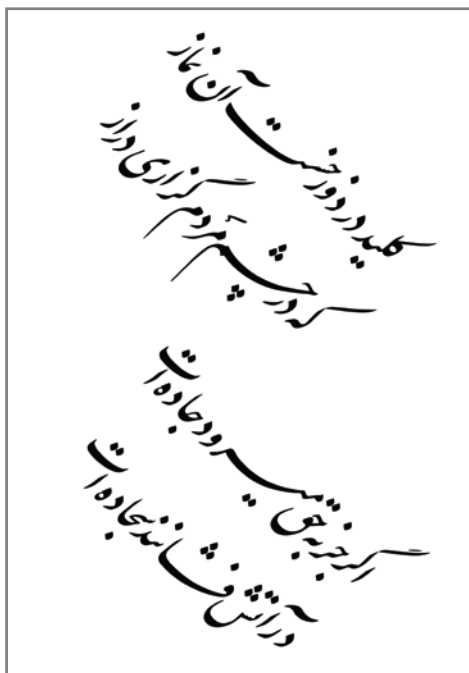 کلید در دوزخست آن نماز
که در چشم مردم گزاری دراز
اگر جز به حق میرود جاده‌ات
در آتش فشانند سجاده‌ات